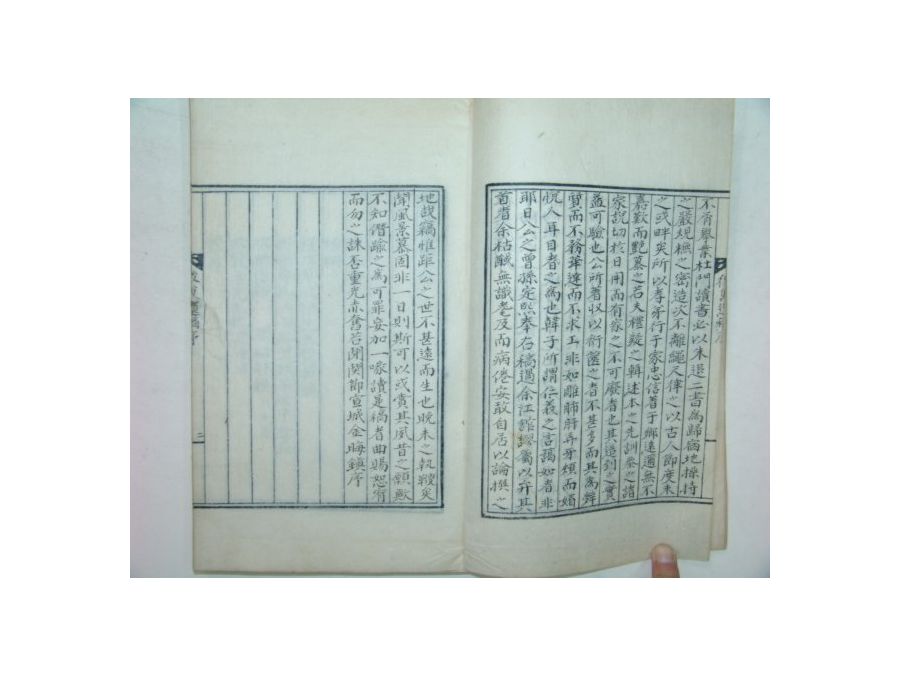 不肯擧業杜門讀書必以朱退二書爲歸宿地操持
之嚴規橅之密造次不離繩尺律之以古人節度未
之或畔矣所以孝弟行于家忠信著于鄕遠邇無不
嘉歎而艶慕之若夫禮疑之輯述本之先訓叅之諸
家說切核日用而有家之不可廢者也其造到之實
益可驗也公所著收以衍篋之者不甚多而其爲辭
質而不務華達而不求工非如雕肺肝弄牙頰而媚
悅人耳目者之爲也韓子所謂仁義之言藹如者非
耶日公之曾孫定熙奉存稿過余江舘謬屬以弁其
首者余枯醎無識耄及而病倦安敢自居以論撰之
地哉竊惟距公之世不甚遠而生也晩未之執鞭矣
聞風景慕固非一日則斯可以或賞其夙昔之願歟
不知僭踰之爲可罪妄加一喙讀是稿者曲賜恕宥
而勿之誅否重光赤奮若閏閏節宣城金晦鎭序
遺稿序
二